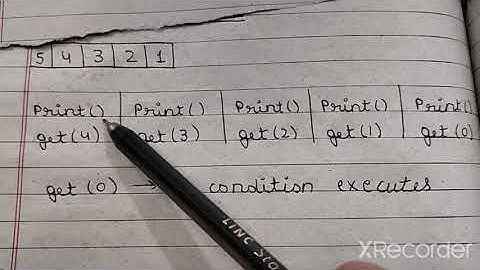 5 4 3 2 1
Print() Print() Print() Print() Print()
get(4) get(3) get(2) get(1) get(0)
get (0) → condition executes
LINC
XRecorder